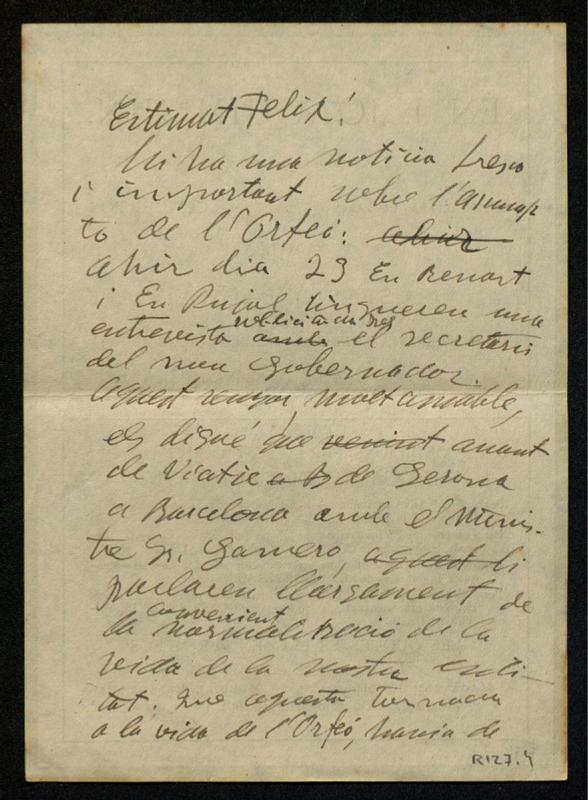 Estimat Felix!
Hi ha una noticia fresca
i important sobre l'assump
to de l'Orfeó: ahir
ahir dia 23 En Renart
i En Pujol tingueren una
entrevista amb el secretari
del nou Gobernador.
Aquest senyor, molt amable,
els digué que venint anant
de viatje a B de Gerona
a Barcelona amb el Minis-
tre Sr. Gamero, aquest li
parlaren llargament de
convenient
la normalització de la
vida de la nostra enti-
tat. Que aquesta tornada
a la vida de l'Orfeó, havia de
R127.4